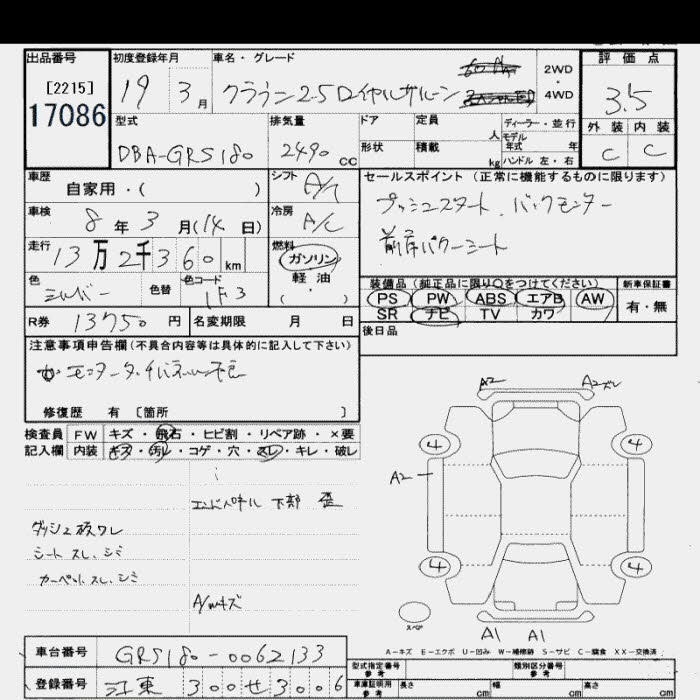 出品番号 初度登録年月 車名・グレード 評価点
[2215]
17086
19 3月 クラウン2.5ロイヤルサルーン 2WD・4WD 3.5
外装 内装
C C
型式 排気量 ドア 定員 人 ディーラー・並行
DBA-GRS180 2490 CC 形状 積載 kg モデル年式 年
ハンドル 左・右
車歴 シフト セールスポイント(正常に機能するものに限ります)
自家用・( ) A/T プッシュスタート、バックモニター
車検 冷房 前席パワーシート
8年3月(14日) A/C
走行 燃料
13万2千360km ガソリン
軽油
・
( )
色 色替 色コード
シルバー 1F3
装備品(純正品に限り○をつけてください) 新車保証書
PS PW ABS エアB AW 有・無
SR ナビ TV カワ
R券 13750円 名変期限 月 日
後日品
注意事項申告欄(不具合内容等は具体的に記入して下さい)
修復歴 有 [箇所 ]
検査員 FW キズ・飛石・ヒビ割・リペア跡・×要
記入欄 内装 キズ・汚レ・コゲ・穴・スレ・キレ・破レ
エンドパネル 下部 歪
ダッシュ板ワレ
シート スレ、シミ
カーペットスレ、シミ
A/Wキズ
A2 A2ズレ
4 4
A2
4 4
スペア
A1 A1
A-キズ E-エクボ U-凹み W-補修跡 S-サビ C-腐食 XX-交換済
車台番号 GRS180-0062133
登録番号 江東 300せ3006
型式指定番号 参考 類別区分番号 参考
車庫証明用 参考 長さ cm 幅 cm 高さ cm